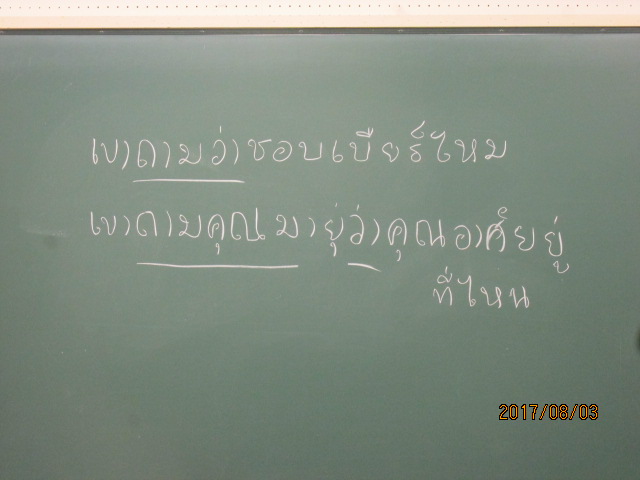 เขาถามว่าชอบเบียร์ไหม
เขาถามคุณมายุ่ว่าคุณอาศัยอยู่
ที่ไหน
2017/08/03